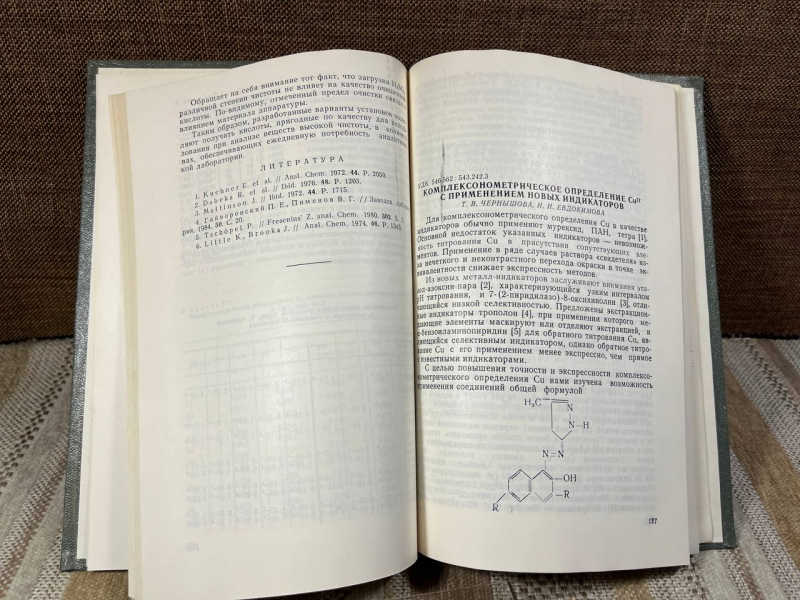 Обращает на себя внимание тот факт, что загрузка
различной степени чистоты не влияет на качество
кислоты. По-видимому, отмеченный предел очистки
влиянием материала аппаратуры.
Таким образом, разработанные варианты установок
ляют получить кислоты, пригодные по качеству для
дования при анализе веществ высокой чистоты, в
вах, обеспечивающих ежедневную потребность
кой лаборатории.
ЛИТЕРАТУРА
1. Kuehner E. et al. // Anal. Chem. 1972. 44. P. 2050.
2. Dabeka R. et al. // Ibid. 1976. 48. P. 1203.
3. Mattinson J. // Ibid. 1972. 44. P. 1715.
4. П. Е., Пименов В. Г. // Заводск.
рия. 1984. 50. С. 20.
5. Tschöpel P. // Fresenius' Z. anal. Chem. 1980. 302.
6. Little K., Brooks J. // Anal. Chem. 1974. 46. P.
УДК 546.562 : 543.242.3
КОМПЛЕКСОНОМЕТРИЧЕСКОЕ ОПРЕДЕЛЕНИЕ Cu
С ПРИМЕНЕНИЕМ НОВЫХ ИНДИКАТОРОВ
Т. В. ЧЕРНЫШОВА, Н. Н. ЕВДОКИМОВА
Для комплексонометрического определения Cu в качестве
индикаторов обычно применяют мурексид, ПАН, тетра [1].
Основной недостаток указанных индикаторов — невозмож-
ность титрования Cu в присутствии сопутствующих эле-
ментов. Применение в ряде случаев раствора «свидетеля» из-
за нечеткого и неконтрастного перехода окраски в точке эк-
вивалентности снижает экспрессность методов.
Из новых металл-индикаторов заслуживают внимания эта-
нол-азоксин-пара [2], характеризующийся узким интервалом
pH титрования, и 7-(2-пиридилазо)-8-оксихинолин [3], отли-
чающийся низкой селективностью. Предложены экстракцион-
ные индикаторы трополон [4], при применении которого ме-
шающие элементы маскируют или отделяют экстракцией, и
[5] для обратного титрования Cu, яв-
ляющийся селективным индикатором, однако обратное титро-
вание Cu с его применением менее экспрессно, чем прямое
с известными индикаторами.
С целью повышения точности и экспрессности комплексо-
нометрического определения Cu нами изучена возможность
применения соединений общей формулой
H₃C
N
N—H
N=N
OH
R
R
127